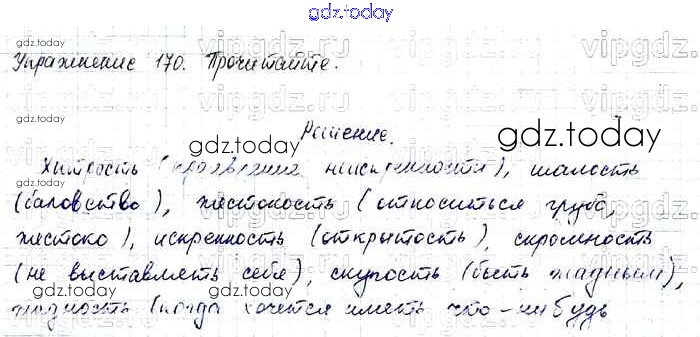 gdz.today
gdz.today
Упражнение 170. Прочитайте.
vipgdz.ru
Решение.
gdz.today
gdz.today
Хитрость (проявление неискренности), шалость
(баловство), жестокость (относиться грубо,
жестоко), искренность (открытость), скромность
(не выставлять себя), скупость (быть жадным),
жадность (когда хочется иметь что-нибудь
gdz.today
gdz.today
gdz.today